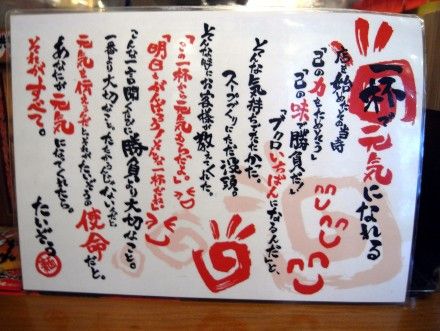 一杯で元気になれる
店を始めたその当時
「己の力をためそう」
「己の味で勝負だ!!」
「ブクロいちばんになるんだ」と、
そんな気持ちでいた。
スープづくりにただ没頭
そんな時にお客様が教えてくれた。
「この一杯から元気もらったよ。」
「明日もがんばろう!そんな一杯だね」
こんな一言を聞くたびに勝負より大切なこと。
一番より大切なことがあったんじゃないかと
元気を伝えることこそたいぞうの使命だと。
あなたが元気になってくれたら
それがすべて。
たいぞう。